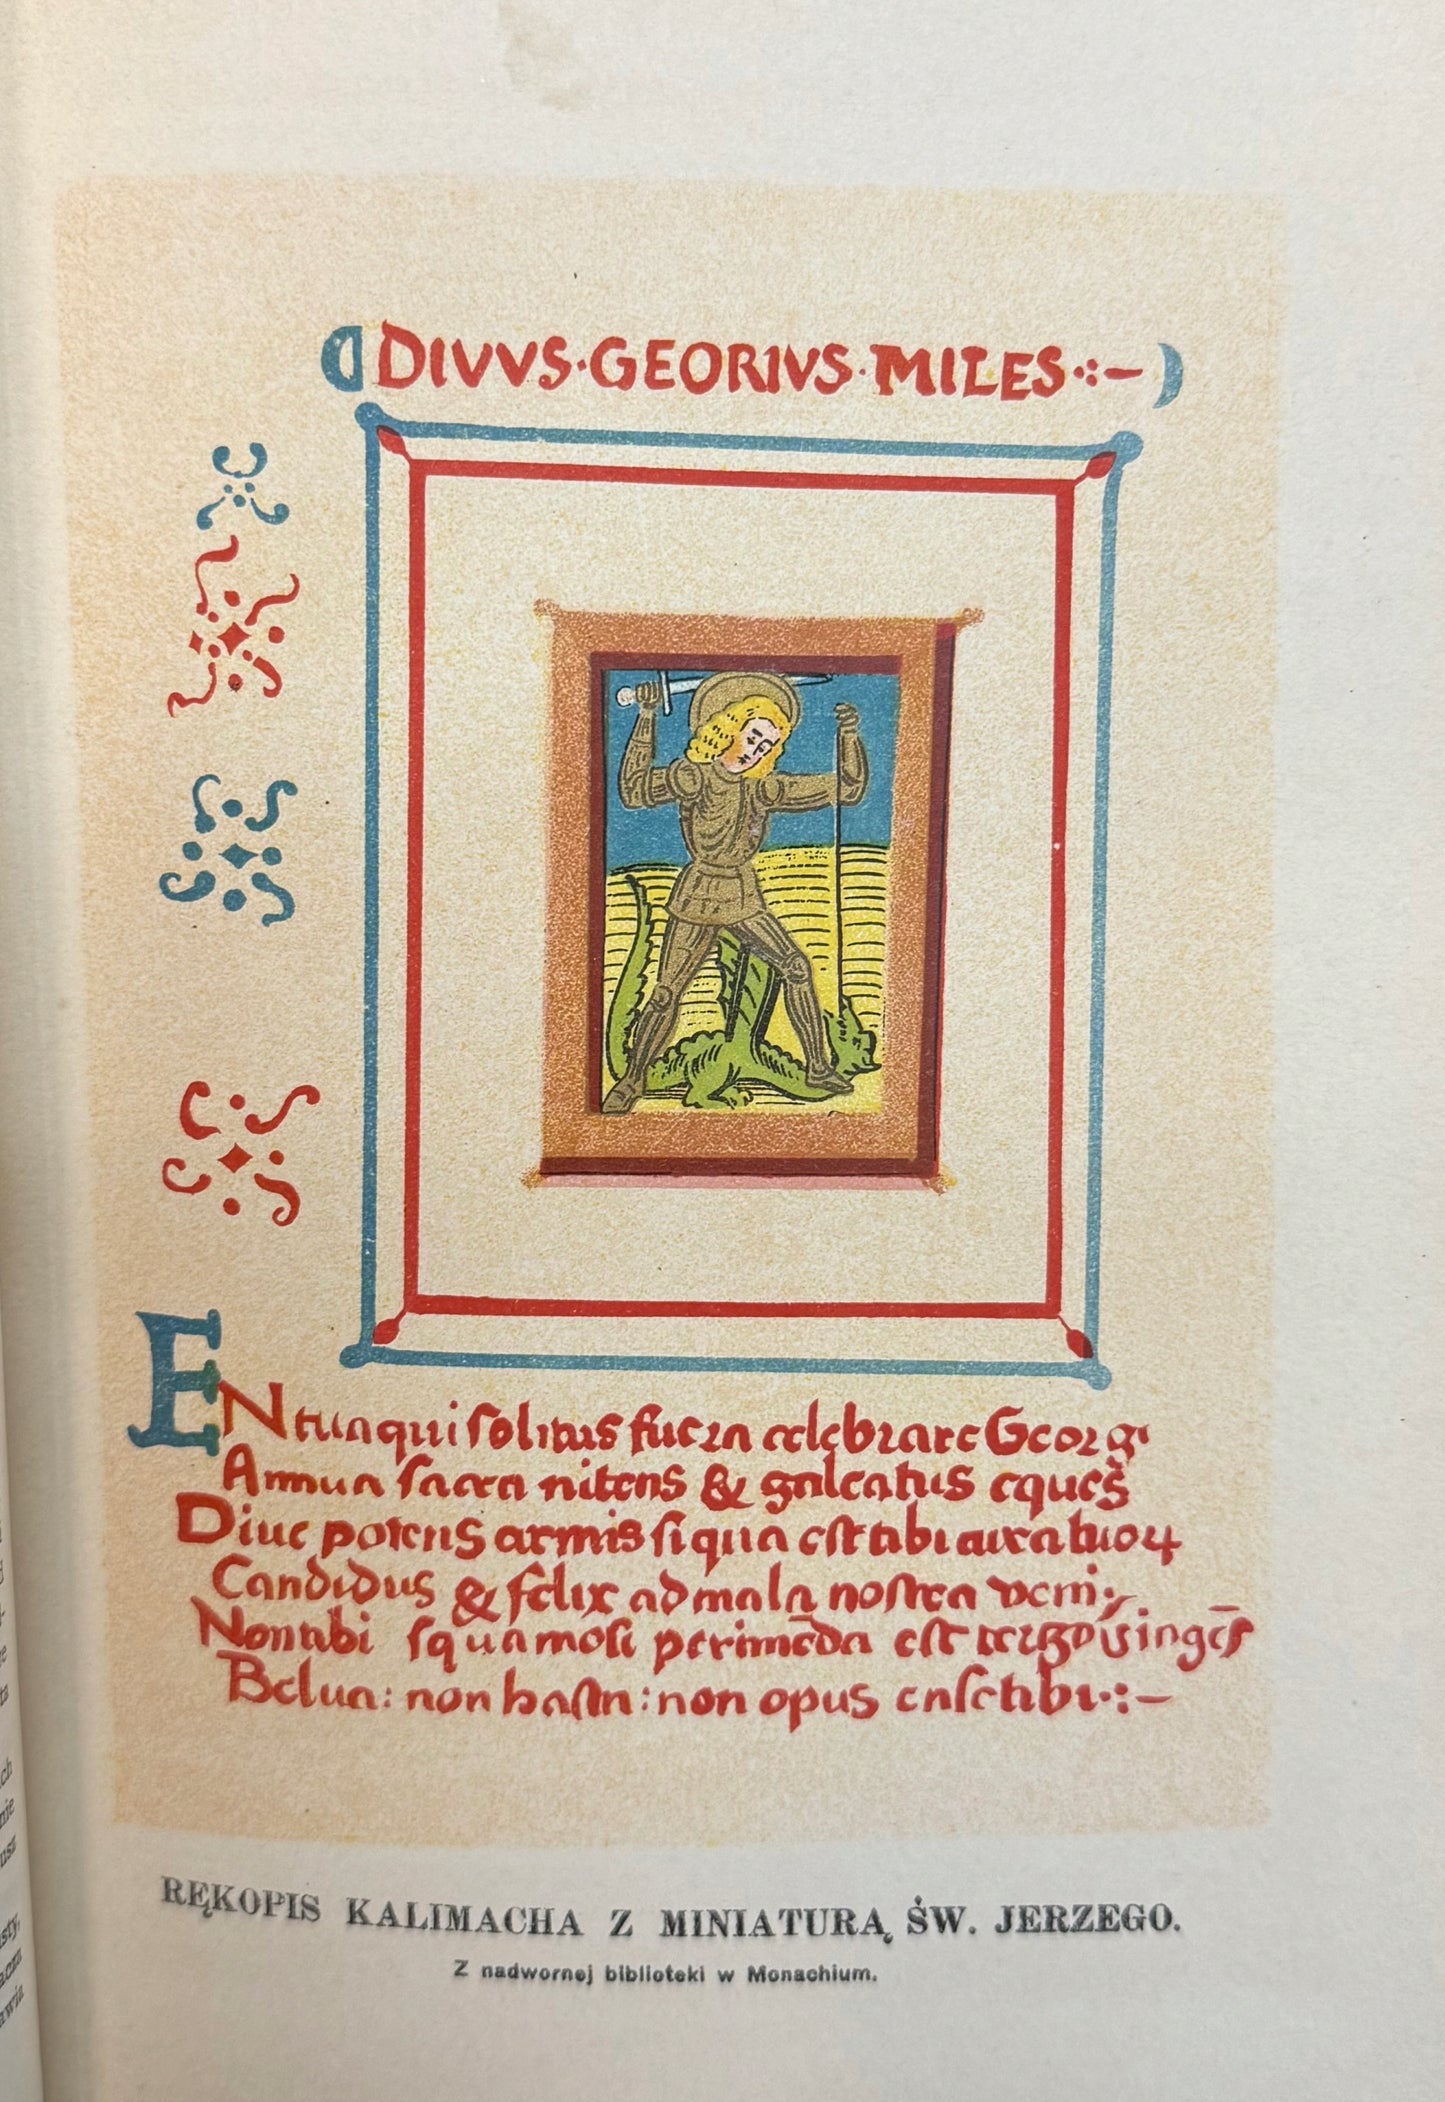 DIVVS·GEORIVS·MILES·:–
ENtuaqui solitus fuera celębrare Georgi
Annua sacra nitens & galeatus eques
Diue potens armis si qua est tibi cura tuoꝝ
Candidus & felix ad mala nostra veni:
Non tibi squamosi perimēda est
Belua: non hasta: non opus ense tibi·:–
RĘKOPIS KALIMACHA Z MINIATURĄ ŚW. JERZEGO.
Z nadwornej biblioteki w Monachium.